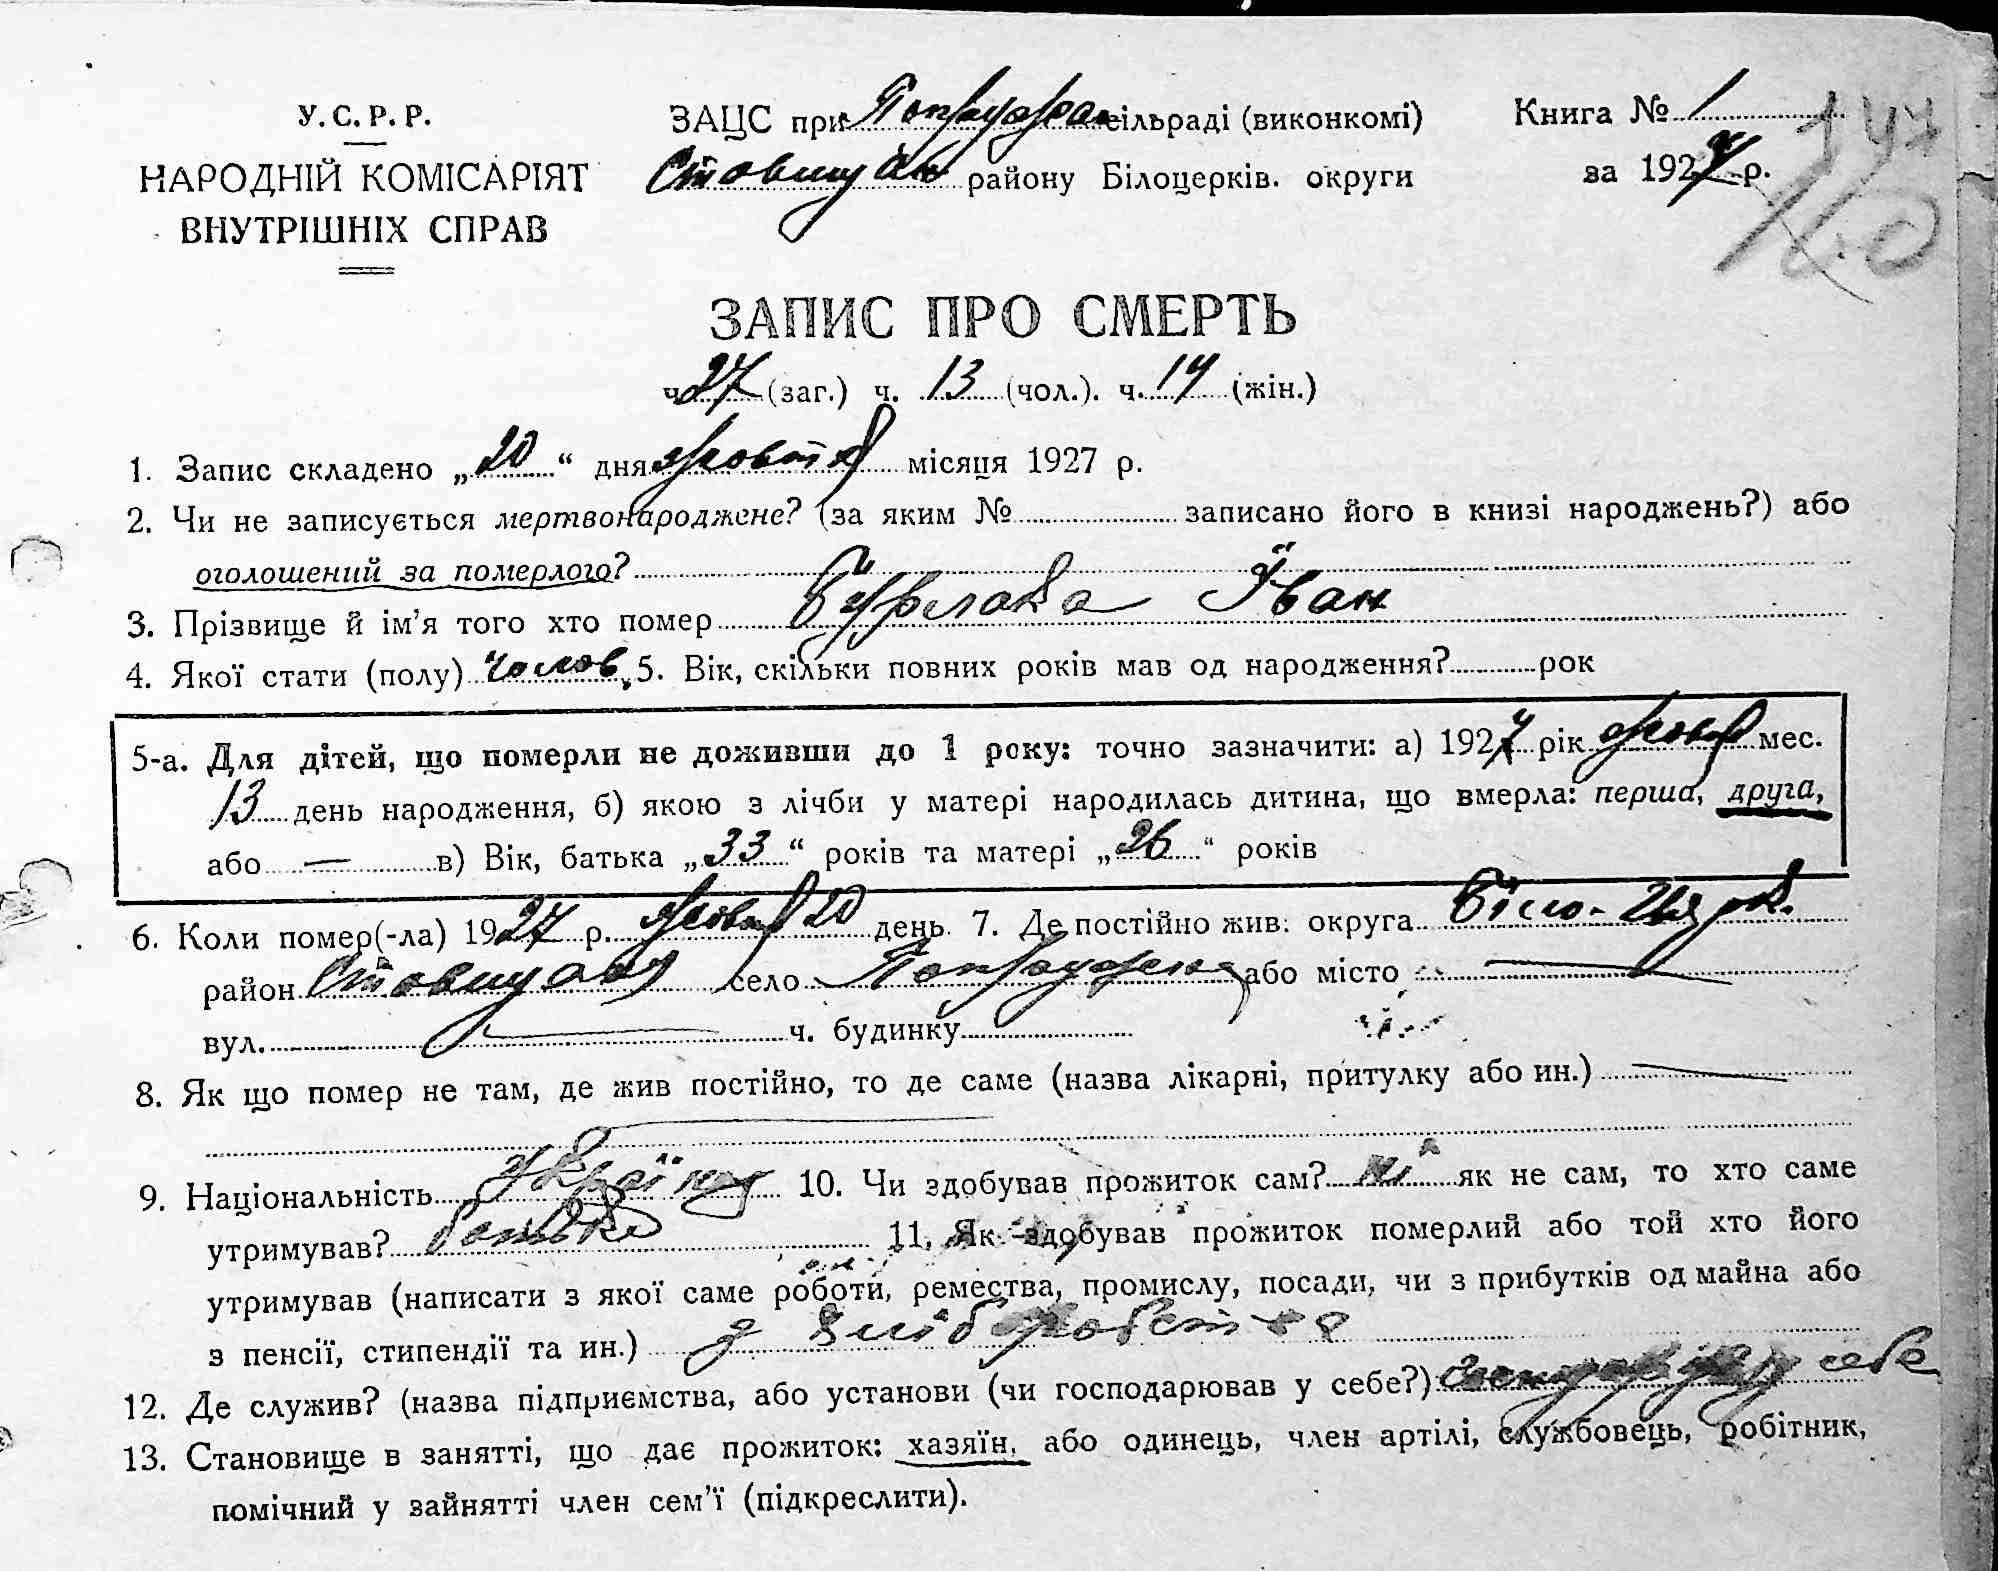 У. С. Р. Р.
НАРОДНІЙ КОМІСАРІЯТ
ВНУТРІШНІХ СПРАВ
ЗАЦС при сільраді (виконкомі)
району Білоцерків. округи
Книга № 1
за 1927 р.
147
ЗАПИС ПРО СМЕРТЬ
ч. 27 (заг.) ч. 13 (чол.). ч. 14 (жін.)
1. Запис складено „20“ дня жовтня місяця 1927 р.
2. Чи не записується мертвонароджене? (за яким № записано його в книзі народжень?) або
оголошений за померлого?
3. Прізвище й ім’я того хто помер Бурлака Іван
4. Якої стати (полу) чолов. 5. Вік, скільки повних років мав од народження? рок
5-а. Для дітей, що померли не доживши до 1 року: точно зазначити: а) 1927 рік жовт мес.
13 день народження, б) якою з лічби у матері народилась дитина, що вмерла: перша, друга,
або — в) Вік, батька „33“ років та матері „26“ років
6. Коли помер(-ла) 1927 р. жовт 20 день. 7. Де постійно жив: округа Біло-Церк.
район село або місто —
вул. — ч. будинку
8. Як що помер не там, де жив постійно, то де саме (назва лікарні, притулку або ин.) —
9. Національність 10. Чи здобував прожиток сам? ні як не сам, то хто саме
утримував? батько 11. Як здобував прожиток померлий або той хто його
утримував (написати з якої саме роботи, ремества, промислу, посади, чи з прибутків од майна або
з пенсії, стипендії та ин.) з хліборобства
12. Де служив? (назва підприємства, або установи (чи господарював у себе?) господарював у себе
13. Становище в занятті, що дає прожиток: хазяїн, або одинець, член артілі, службовець, робітник,
помічний у зайнятті член сем’ї (підкреслити).